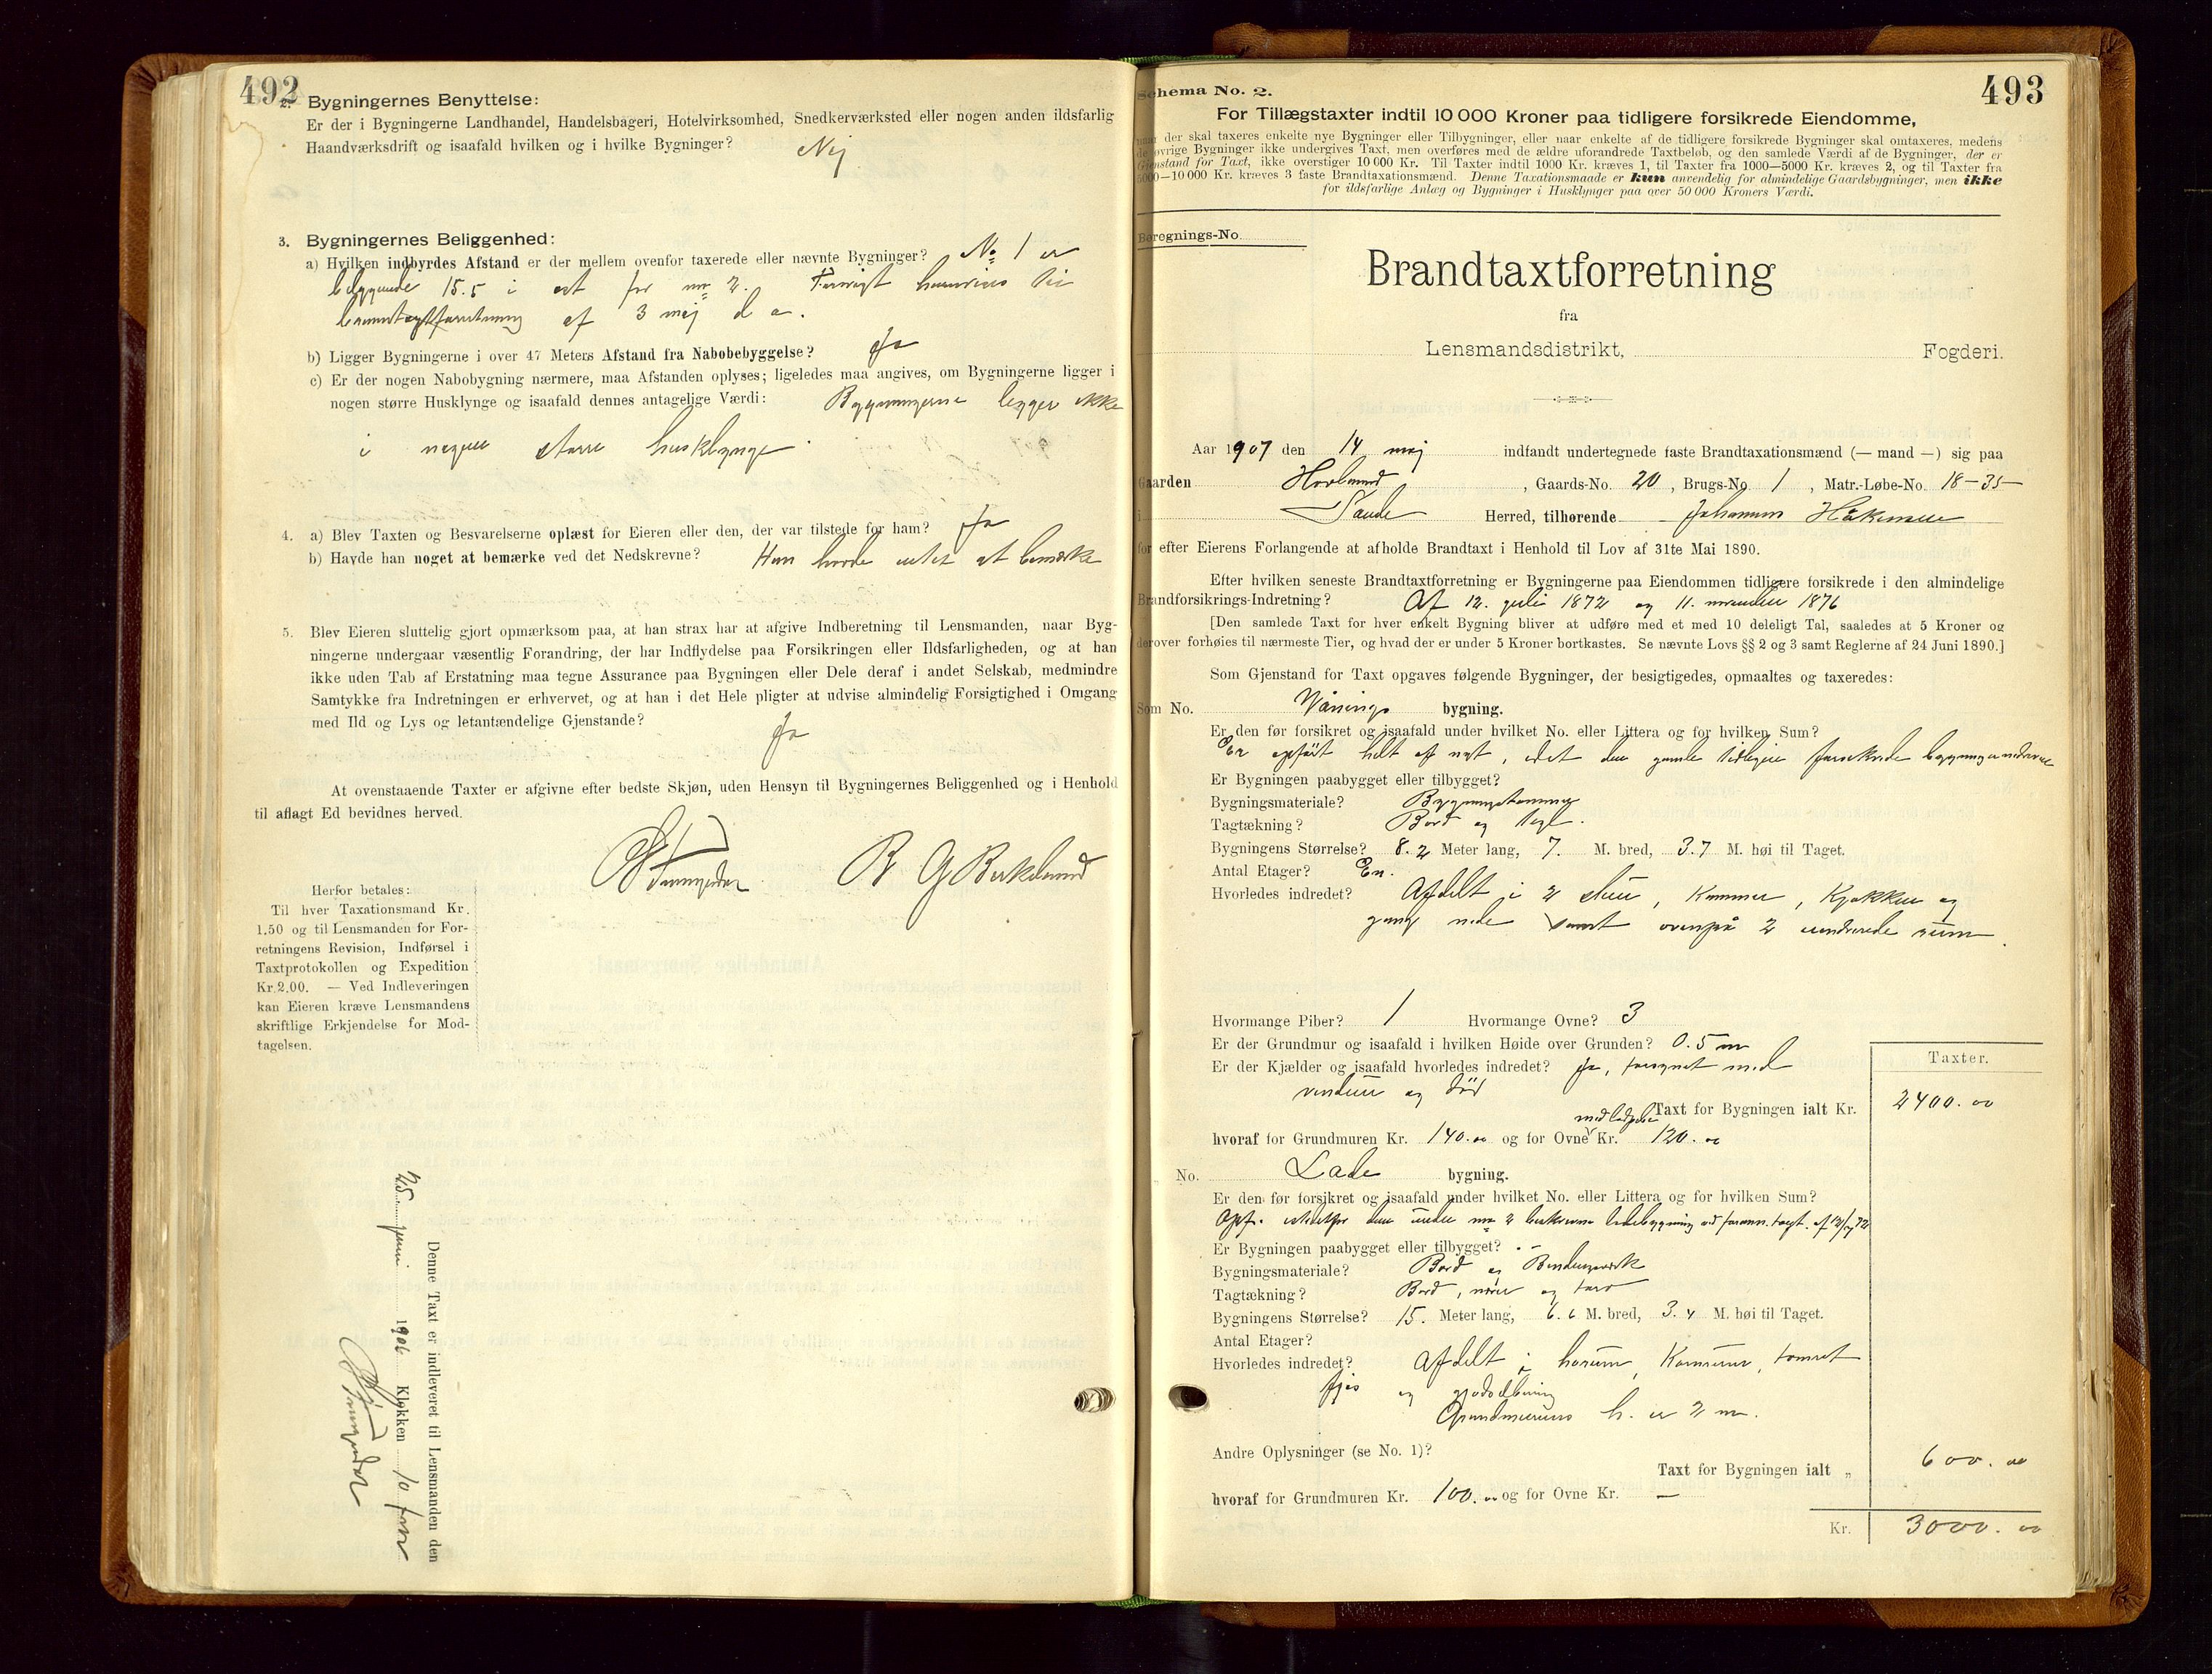 492
2. Bygningernes Benyttelse:
Er der i Bygningerne Landhandel, Handelsbageri, Hotelvirksomhed, Snedkerværksted eller nogen anden ildsfarlig
Haandværksdrift og isaafald hvilken og i hvilke Bygninger? Nej
3. Bygningernes Beliggenhed:
a) Hvilken indbyrdes Afstand er der mellem ovenfor taxerede eller nævnte Bygninger? No 1 er
beliggende 15.5 i øst for no 2. Forøvrigt henvises til
branntaxtforretning af 3 maj d a.
b) Ligger Bygningerne i over 47 Meters Afstand fra Nabobebyggelse? Ja
c) Er der nogen Nabobygning nærmere, maa Afstanden oplyses; ligeledes maa angives, om Bygningerne ligger i
nogen større Husklynge og isaafald dennes antagelige Værdi: Bygningerne ligger ikke
i nogen større husklynge.
4. a) Blev Taxten og Besvarelserne oplæst for Eieren eller den, der var tilstede for ham? Ja
b) Havde han noget at bemærke ved det Nedskrevne? Han havde intet at bemærke
5. Blev Eieren sluttelig gjort opmærksom paa, at han strax har at afgive Indberetning til Lensmanden, naar Byg-
ningerne undergaar væsentlig Forandring, der har Indflydelse paa Forsikringen eller Ildsfarligheden, og at han
ikke uden Tab af Erstatning maa tegne Assurance paa Bygningen eller Dele deraf i andet Selskab, medmindre
Samtykke fra Indretningen er erhvervet, og at han i det Hele pligter at udvise almindelig Forsigtighed i Omgang
med Ild og Lys og letantændelige Gjenstande? Ja
At ovenstaaende Taxter er afgivne efter bedste Skjøn, uden Hensyn til Bygningernes Beliggenhed og i Henhold
til aflagt Ed bevidnes herved.
B G Birkeland
Herfor betales:
Til hver Taxationsmand Kr.
1.50 og til Lensmanden for For-
retningens Revision, Indførsel i
Taxtprotokollen og Expedition
Kr. 2.00. — Ved Indleveringen
kan Eieren kræve Lensmandens
skriftlige Erkjendelse for Mod-
tagelsen.
Denne Taxt er indleveret til Lensmanden den
25 juni 1906 Klokken 10 form
493
Schema No. 2.
For Tillægstaxter indtil 10 000 Kroner paa tidligere forsikrede Eiendomme,
naar der skal taxeres enkelte nye Bygninger eller Tilbygninger, eller naar enkelte af de tidligere forsikrede Bygninger skal omtaxeres, medens
de øvrige Bygninger ikke undergives Taxt, men overføres med de ældre uforandrede Taxtbeløb, og den samlede Værdi af de Bygninger, der er
Gjenstand for Taxt, ikke overstiger 10 000 Kr. Til Taxter indtil 1000 Kr. kræves 1, til Taxter fra 1000—5000 Kr. kræves 2, og til Taxter fra
5000—10 000 Kr. kræves 3 faste Brandtaxationsmænd. Denne Taxationsmaade er kun anvendelig for almindelige Gaardsbygninger, men ikke
for ildsfarlige Anlæg og Bygninger i Husklynger paa over 50 000 Kroners Værdi.
Beregnings-No.
Brandtaxtforretning
fra
Lensmandsdistrikt, Fogderi.
Aar 1907 den 14 maj indfandt undertegnede faste Brandtaxationsmænd (— mand —) sig paa
Gaarden Hovland, Gaards-No. 20, Brugs-No. 1, Matr.-Løbe-No. 18-35-
i Saude Herred, tilhørende Johannes Håkonsen
for efter Eierens Forlangende at afholde Brandtaxt i Henhold til Lov af 31te Mai 1890.
Efter hvilken seneste Brandtaxtforretning er Bygningerne paa Eiendommen tidligere forsikrede i den almindelige
Brandforsikrings-Indretning? Af 12. juli 1872 og 11. november 1876
[Den samlede Taxt for hver enkelt Bygning bliver at udføre med et med 10 deleligt Tal, saaledes at 5 Kroner og
derover forhøies til nærmeste Tier, og hvad der er under 5 Kroner bortkastes. Se nævnte Lovs §§ 2 og 3 samt Reglerne af 24 Juni 1890.]
Som Gjenstand for Taxt opgaves følgende Bygninger, der besigtigedes, opmaaltes og taxeredes:
Som No. Vånings bygning.
Er den før forsikret og isaafald under hvilket No. eller Littera og for hvilken Sum?
Er opført helt af nyt, idet den gamle tidligere forsikrede bygning er nedrevet
Er Bygningen paabygget eller tilbygget?
Bygningsmateriale? Bygningstømmer
Tagtækning? Bord og tegl.
Bygningens Størrelse? 8.2 Meter lang, 7. M. bred, 3.7 M. høi til Taget.
Antal Etager? En.
Hvorledes indredet? Afdelt i 2 stuer, Kammer, Kjøkken og
gang nede samt ovenpå 2 uindredede rum
Hvormange Piber? 1 Hvormange Ovne? 3
Er der Grundmur og isaafald i hvilken Høide over Grunden? 0.5 m
Er der Kjælder og isaafald hvorledes indredet? Ja, forsynet med
vinduer og dør
Taxter.
Taxt for Bygningen ialt Kr. 2400.00
hvoraf for Grundmuren Kr. 140.00 og for Ovne Kr. 120.00
No. Lade bygning.
Er den før forsikret og isaafald under hvilket No. eller Littera og for hvilken Sum?
Opf. istedetfor den under no 2 beskrevne ladebygning
Er Bygningen paabygget eller tilbygget? -
Bygningsmateriale? Bord og Bindingsverk
Tagtækning? Bord, næver og torv
Bygningens Størrelse? 15. Meter lang, 6.6 M. bred, 3.4 M. høi til Taget.
Antal Etager?
Hvorledes indredet? Afdelt i hørum, Kornrum, tomset
fjøs og gjødselbinding
Grundmurens h. er 2 m.
Andre Oplysninger (se No. 1)?
Taxt for Bygningen ialt „ 600.00
hvoraf for Grundmuren Kr. 100.00 og for Ovne Kr. —
Kr. 3000.00